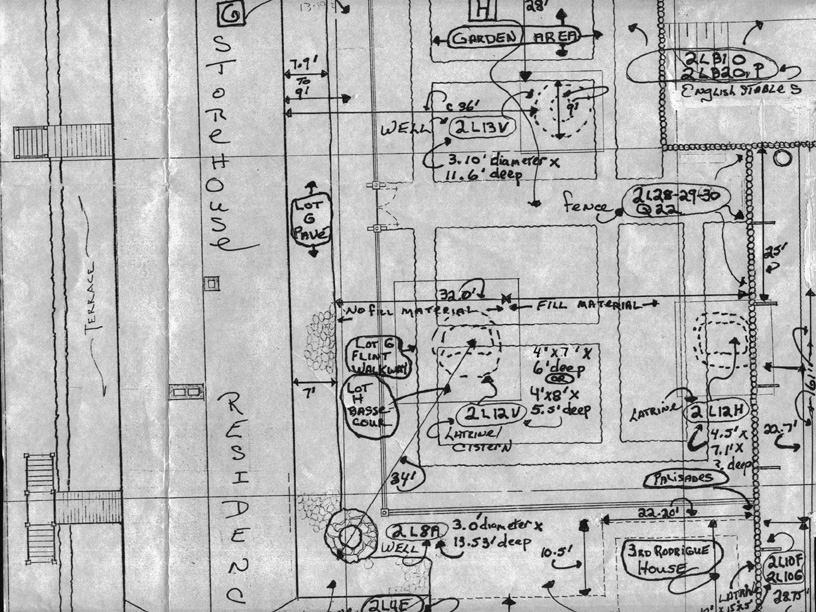 G
H
28'
GARDEN AREA
STOREHOUSE
7.9'
TO
9'
2LB10
2LB20, P
ENGLISH STABLES
C 36'
9'
WELL
2L13V
3.10' diameter x
11.6' deep
fence
2L28-29-30
Q22
LOT
G
PAVE
25'
TERRACE
32.0'
NO FILL MATERIAL
FILL MATERIAL
LOT G
FLINT
WALKWAY
4'x7'x
6' deep
OR
4'x8'x
5.5' deep
7'
LOT
H
BASSE
COUR
2L12V
LATRINE/
CISTERN
LATRINE
2L12H
4.5'x
7.1'x
? deep
22.7'
RESIDENC
34'
PALISADES
22-20'
2L8A
WELL
3.0' diameter x
13.53' deep
10.5'
3RD RODRIGUE
HOUSE
2L10F
2L10G
28.75'
2L4E